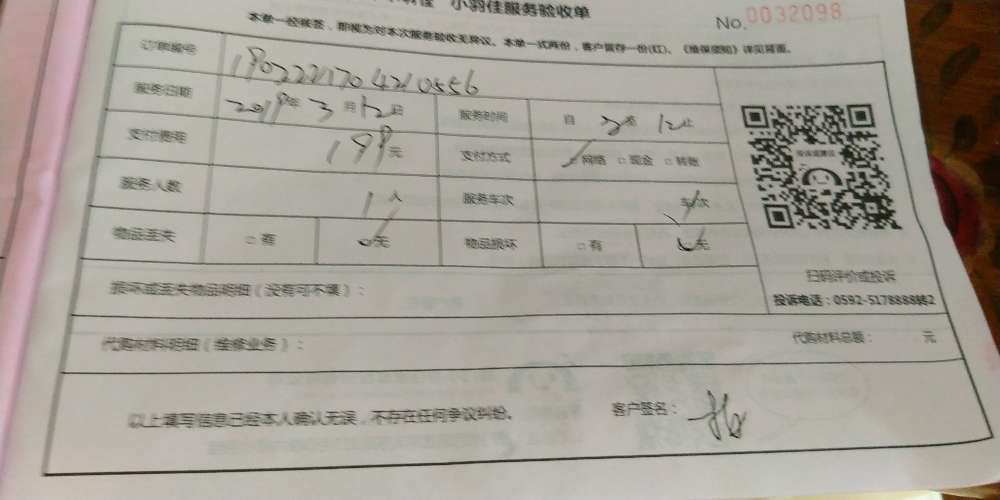 小羽佳服务验收单
No.0032098
本单一经核签，即视为对本次服务验收无异议。本单一式两份，客户留存一份(红)、《维保须知》详见背面。
订单编号
服务日期 2019年3月12日 服务时间 自 2 至 12止
支付费用 199元 支付方式 网络 □现金 □转账
服务人数 1人 服务车次 车/次
物品丢失 □有 □无 物品损坏 □有 □无
投诉或建议
扫码评价或投诉
投诉电话：0592-5178888转2
损坏或丢失物品明细（没有可不填）：
代购材料明细（维修业务）： 代购材料总额： 元
以上填写信息已经本人确认无误，不存在任何争议纠纷。 客户签名：